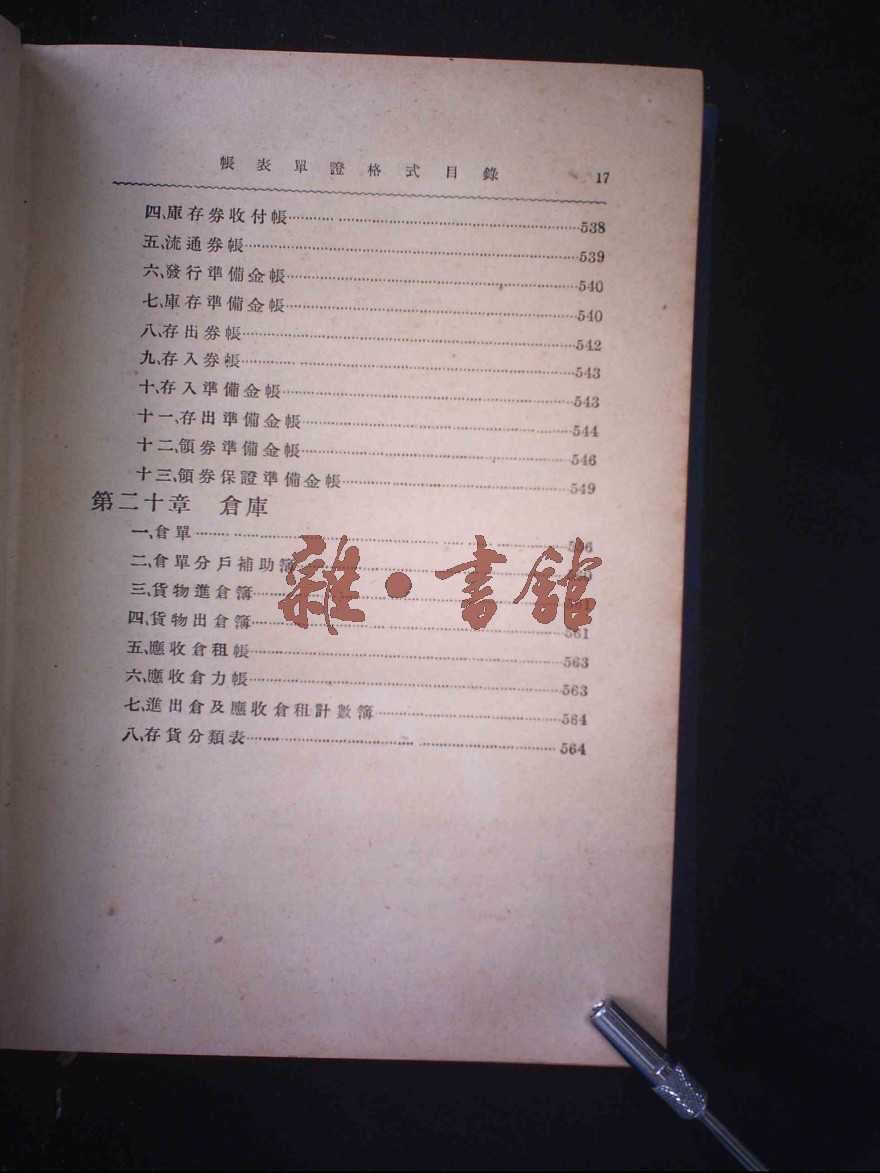 帳表單證格式目錄 17
四、庫存券收付帳……………538
五、流通券帳……………539
六、發行準備金帳……………540
七、庫存準備金帳……………540
八、存出券帳……………542
九、存入券帳……………543
十、存入準備金帳……………543
十一、存出準備金帳……………544
十二、領券準備金帳……………546
十三、領券保證準備金帳……………549
第二十章 倉庫
一、倉單……………
二、倉單分戶補助簿……………
三、貨物進倉簿……………561
四、貨物出倉簿……………561
五、應收倉租帳……………563
六、應收倉力帳……………563
七、進出倉及應收倉租計數簿……………564
八、存貨分類表……………564
雜·書館